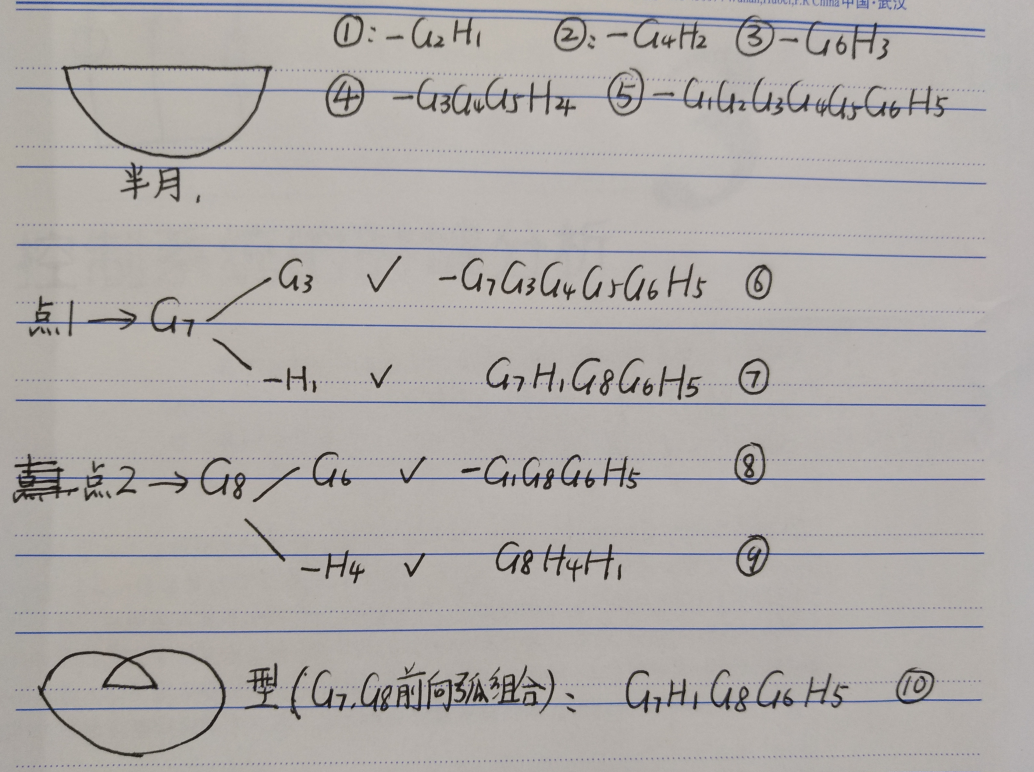 中国·武汉
①:-G2H1 ②:-G4H2 ③-G6H3
④ -G3G4G5H4 ⑤-G1G2G3G4G5G6H5
半月.
G3 ✓ -G7G3G4G5G6H5 ⑥
点1→G7
-H1 ✓ G7H1G8G6H5 ⑦
点2→G8 G6 ✓ -G1G8G6H5 ⑧
-H4 ✓ G8H4H1 ⑨
型(G7,G8前向弧组合): G7H1G8G6H5 ⑩